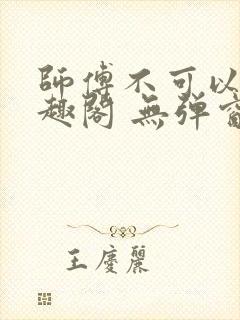 師傅不可以
趣閣 無彈
王慶麗